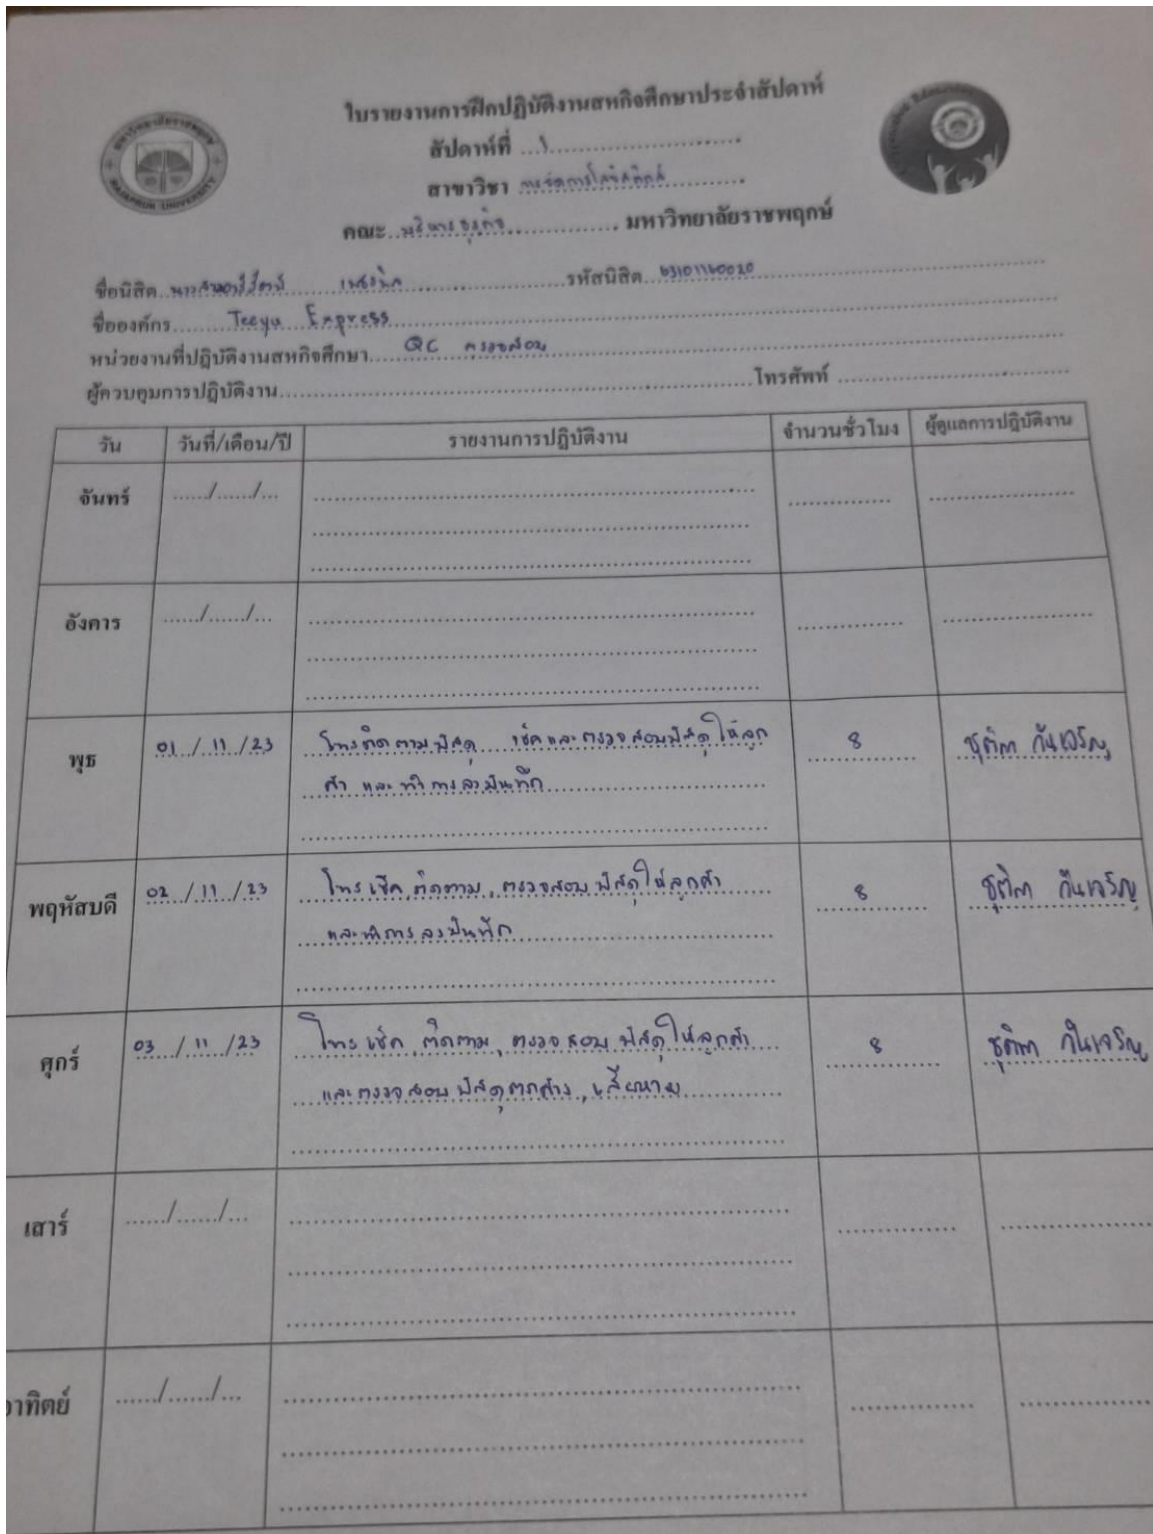 ใบรายงานการฝึกปฏิบัติงานสหกิจศึกษาประจำสัปดาห์
สัปดาห์ที่ ...1...
สาขาวิชา การจัดการโลจิสติกส์
คณะ บริหารธุรกิจ มหาวิทยาลัยราชพฤกษ์
RAJAPRUK UNIVERSITY
ชื่อนิสิต รหัสนิสิต 63101160020
ชื่อองค์กร Teeyu Express
หน่วยงานที่ปฏิบัติงานสหกิจศึกษา QC ตรวจสอบ
ผู้ควบคุมการปฏิบัติงาน โทรศัพท์
วัน วันที่/เดือน/ปี รายงานการปฏิบัติงาน จำนวนชั่วโมง ผู้ดูแลการปฏิบัติงาน
จันทร์ ....../....../...
อังคาร ....../....../...
พุธ 01 / 11 / 23 โทรติดตามพัสดุ เช็คและตรวจสอบพัสดุให้ลูก 8 ชุติภา กันเจริญ
ค้า และทำการลงบันทึก
พฤหัสบดี 02 / 11 / 23 โทรเช็ค, ติดตาม, ตรวจสอบพัสดุให้ลูกค้า 8 ชุติภา กันเจริญ
และทำการลงบันทึก
ศุกร์ 03 / 11 / 23 โทรเช็ค, ติดตาม, ตรวจสอบพัสดุให้ลูกค้า 8 ชุติภา กันเจริญ
และตรวจสอบพัสดุตกค้าง, เสียหาย
เสาร์ ....../....../...
อาทิตย์ ....../....../...